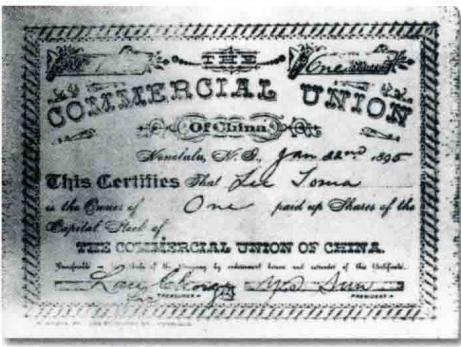 One
THE
COMMERCIAL UNION
Of China
Honolulu, H. I., Jan 22nd 1895
This Certifies That Lee Toma
is the Owner of One paid up Shares of the
Capital Stock of
THE COMMERCIAL UNION OF CHINA.
Transferable on the books of the Company by endorsement hereon and surrender of this Certificate.
Lau Chong Y. S. Sun
TREASURER PRESIDENT